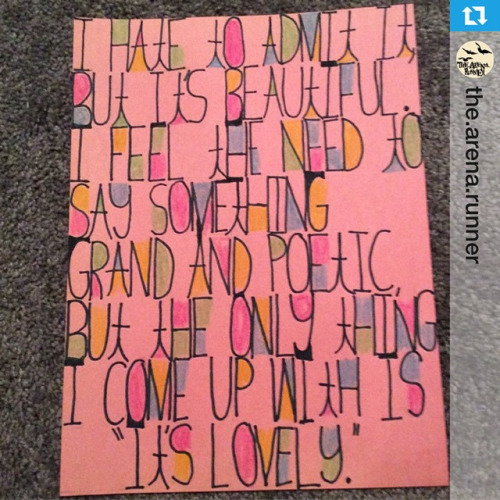 I HATE TO ADMIT IT,
BUT IT'S BEAUTIFUL.
I FEEL THE NEED TO
SAY SOMETHING
GRAND AND POETIC,
BUT THE ONLY THING
I COME UP WITH IS
"IT'S LOVELY."
THE ARENA RUNNER
the.arena.runner